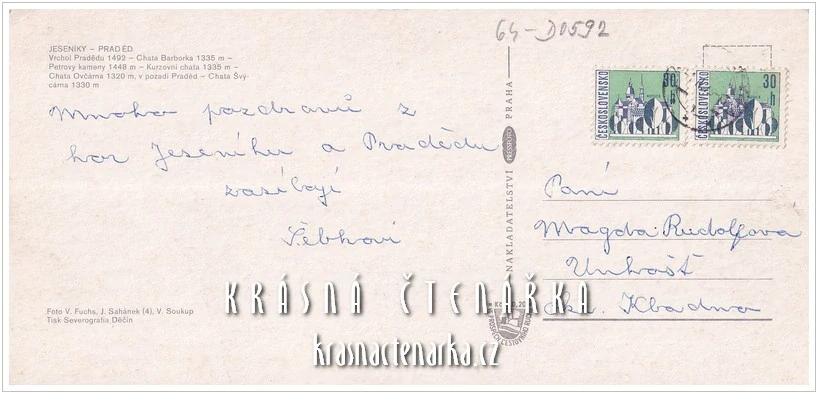 64-D0592
JESENÍKY – PRADĚD
Vrchol Pradědu 1492 – Chata Barborka 1335 m –
Petrovy kameny 1448 m – Kurzovní chata 1335 m –
Chata Ovčárna 1320 m, v pozadí Praděd – Chata Švý-
cárna 1330 m
Mnoho pozdravů z
hor Jeseníku a Pradědu
zasílají
Foto V. Fuchs, J. Sahánek (4), V. Soukup
Tisk Severografia Děčín
NAKLADATELSTVÍ PRESSFOTO PRAHA
ČESKOSLOVENSKO
30 h
ČESKOSLOVENSKO
30 h
Paní
Magda Rudolfova
Unhošť
okr. Kladno
KRÁSNÁ ČTENÁŘKA
krasnactenarka.cz